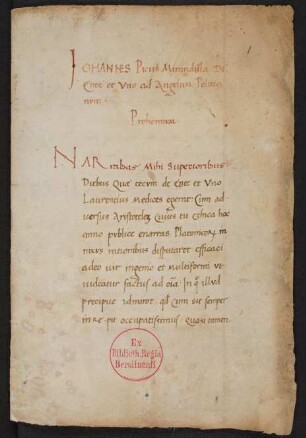 IOHANNES Picus Mirandula De
Ente et Uno ad Angelum Politia
num
Prohemium
NARrabas Mihi Superioribus
Diebus Quae tecum de Ente et Uno
Laurentius Medices egerit: Cum ad
versus Aristotelem cuius tu Ethica hoc
anno publice enarras Platonicorum in
nixus rationibus disputaret efficaci
adeo vir ingenio et multiformi ut
videatur factus ad omnia. In quo illud
precipue admiror quod cum sit semper
in Re pu occupatissimus quasi tamen
Ex
Biblioth. Regia
Berolinensi